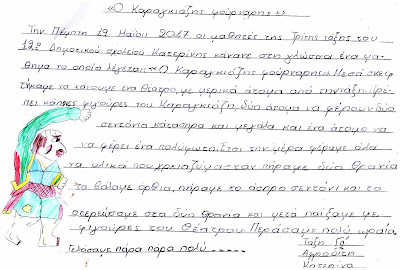 «Ο Καραγκιόζης φούρναρης»
Την Πέμπτη 19 Μαΐου 2017 οι μαθητές της Τρίτης τάξης του
12ου Δημοτικού σχολείου Κατερίνης κάνατε στη γλώσσα ένα μα-
θημα το οποίο λέγεται «Ο Καραγκιόζης φούρναρης». Μεσά σκεφ
τήκαμε να κάνουμε ένα θέατρο, με μερικά άτομα από την τάξη. Πρέ-
πει κάποιες φιγούρες του Καραγκιόζη, δύο άτομα να φέρουν δύο
σεντόνια κατάσπρα και μεγάλα και ένα άτομο να
να φέρει ένα πολύφωτο. Έτσι την μέρα φέραμε όλα
τα υλικά που χρειαζόμασταν πήραμε δύο θρανία
τα βάλαμε όρθια, πήραμε το άσπρο σεντόνι και το
στερεώσαμε στα δύο θρανία και μετά παίξαμε με
φιγούρες του θέατρου. Περάσαμε πολύ ωραία.
Γελάσαμε πάρα πάρα πολύ......
Τάξη Γ2
Αφροδίτη
Κατερίνα